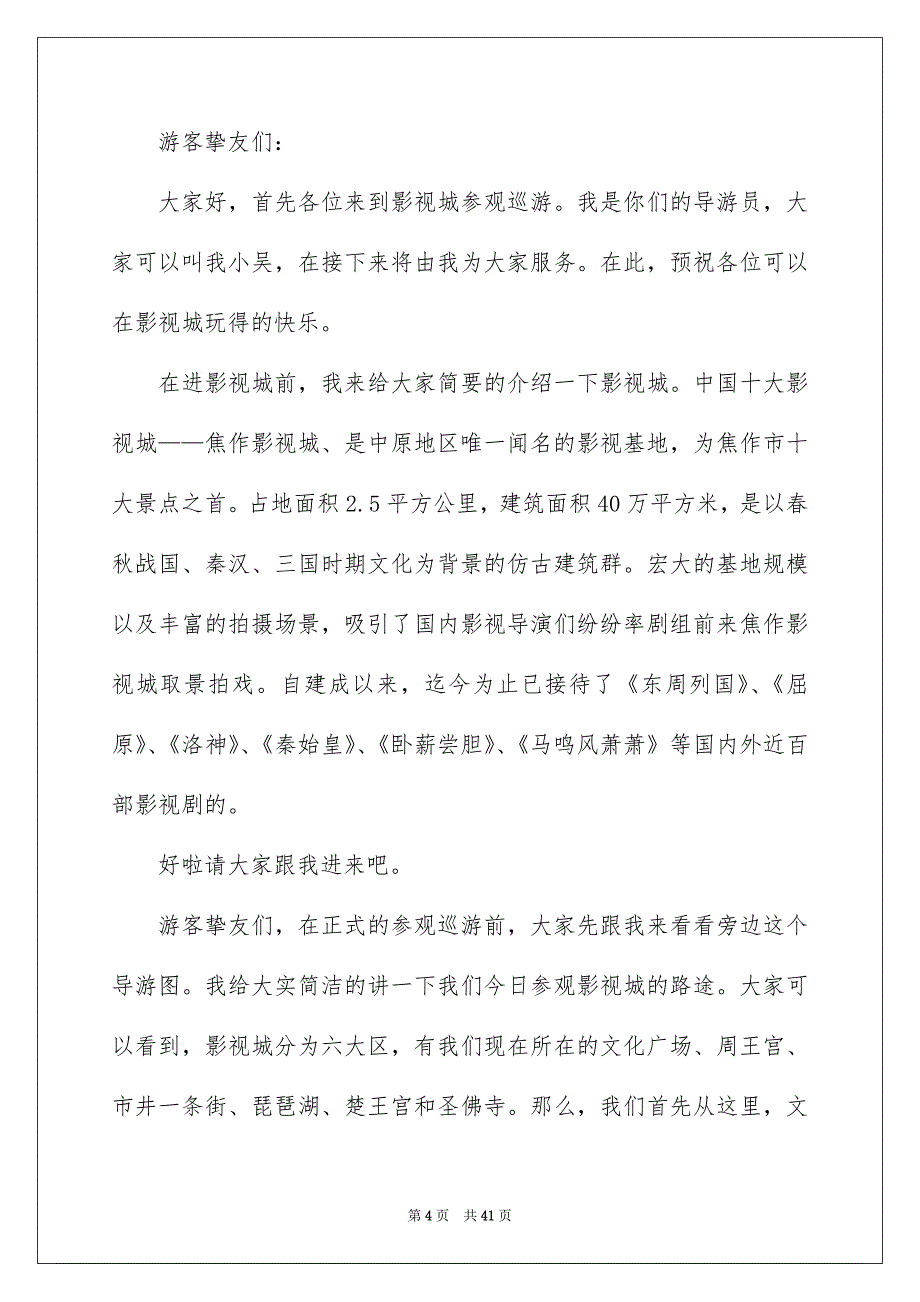 游客挚友们：
大家好，首先各位来到影视城参观巡游。我是你们的导游员，大
家可以叫我小吴，在接下来将由我为大家服务。在此，预祝各位可以
在影视城玩得的快乐。
在进影视城前，我来给大家简要的介绍一下影视城。中国十大影
视城——焦作影视城、是中原地区唯一闻名的影视基地，为焦作市十
大景点之首。占地面积 2.5 平方公里，建筑面积 40 万平方米，是以春
秋战国、秦汉、三国时期文化为背景的仿古建筑群。宏大的基地规模
以及丰富的拍摄场景，吸引了国内影视导演们纷纷率剧组前来焦作影
视城取景拍戏。自建成以来，迄今为止已接待了《东周列国》、《屈
原》、《洛神》、《秦始皇》、《卧薪尝胆》、《马鸣风萧萧》等国内外近百
部影视剧的。
好啦请大家跟我进来吧。
游客挚友们，在正式的参观巡游前，大家先跟我来看看旁边这个
导游图。我给大实简洁的讲一下我们今日参观影视城的路途。大家可
以看到，影视城分为六大区，有我们现在所在的文化广场、周王宫、
市井一条街、琵琶湖、楚王宫和圣佛寺。那么，我们首先从这里，文
第 4 页 共 41 页